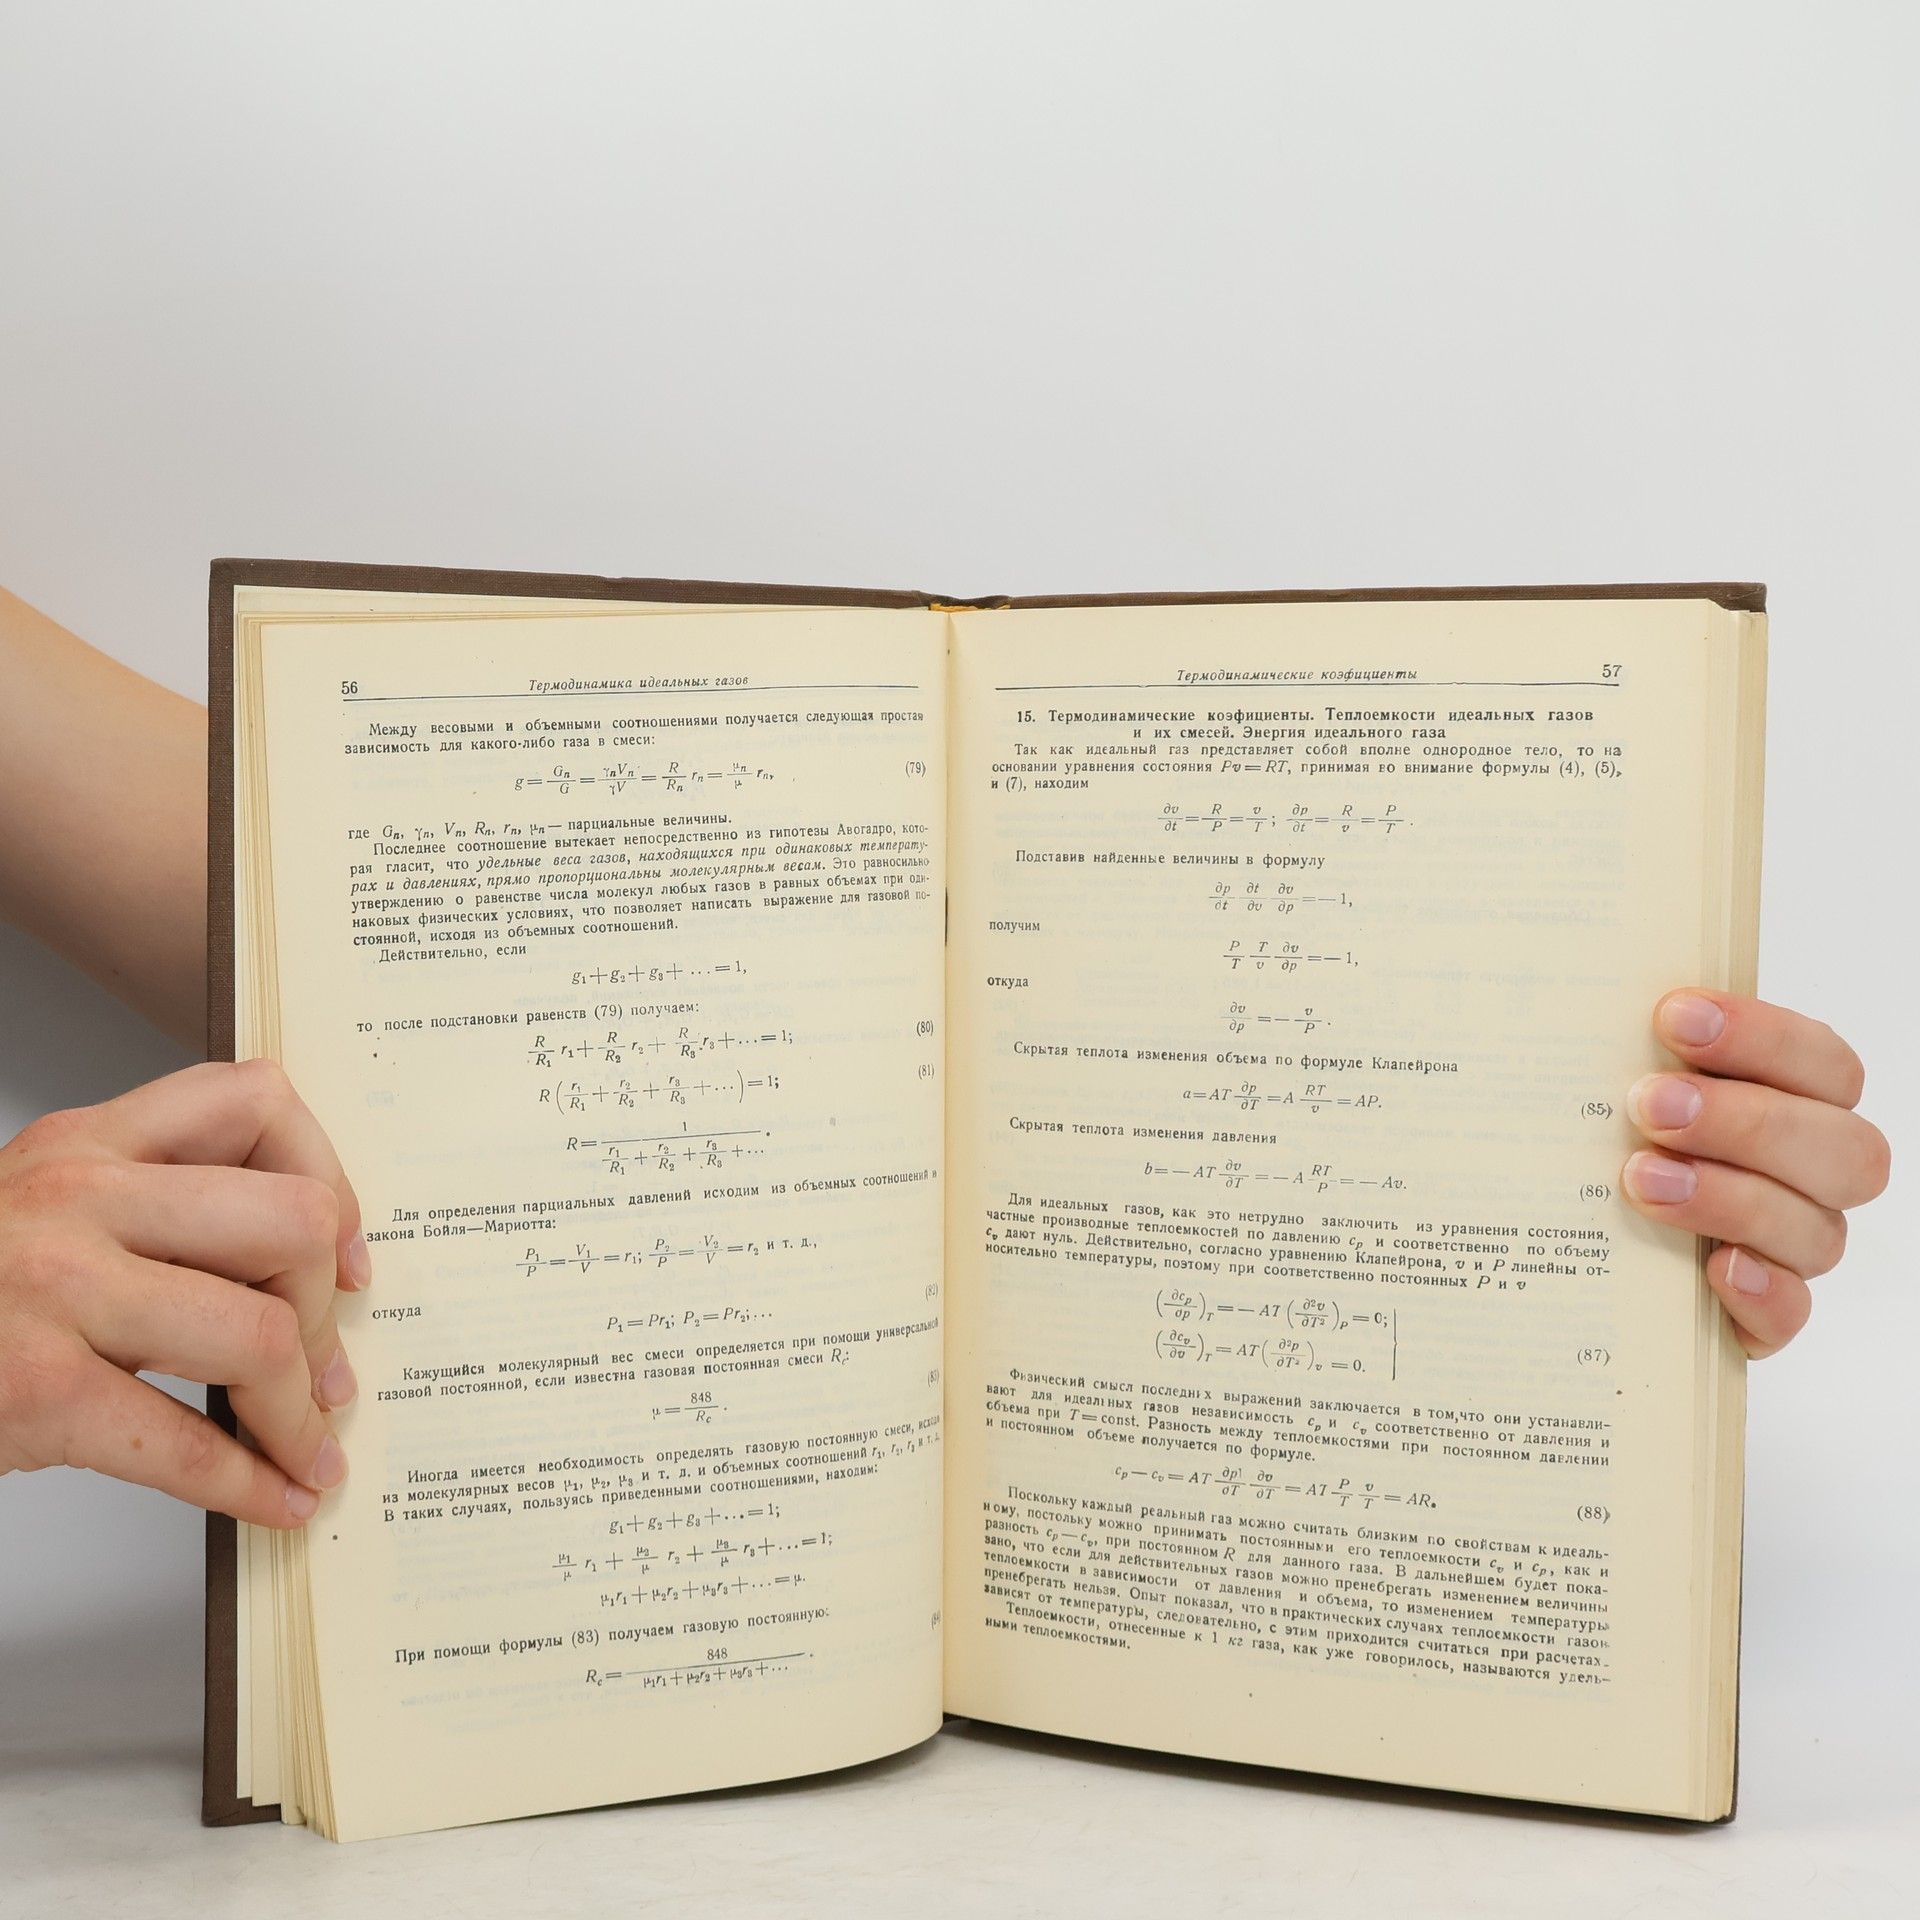 56
Термодинамика идеальных газов
Между весовыми и объемными соотношениями получается следующая простая
зависимость для какого-либо газа в смеси:
g = Gₙ/G = γₙVₙ/γV = R/Rₙ rₙ = μₙ/μ rₙ, (79)
где Gₙ, γₙ, Vₙ, Rₙ, rₙ, μₙ — парциальные величины.
Последнее соотношение вытекает непосредственно из гипотезы Авогадро, кото-
рая гласит, что удельные веса газов, находящихся при одинаковых температу-
рах и давлениях, прямо пропорциональны молекулярным весам. Это равносильно
утверждению о равенстве числа молекул любых газов в равных объемах при оди-
наковых физических условиях, что позволяет написать выражение для газовой по-
стоянной, исходя из объемных соотношений.
Действительно, если
g₁+g₂+g₃+ ... = 1,
то после подстановки равенств (79) получаем:
R/R₁ r₁ + R/R₂ r₂ + R/R₃ r₃ + ... = 1; (80)
R (r₁/R₁ + r₂/R₂ + r₃/R₃ + ...) = 1; (81)
R = 1/(r₁/R₁ + r₂/R₂ + r₃/R₃ + ...).
Для определения парциальных давлений исходим из объемных соотношений и
закона Бойля—Мариотта:
P₁/P = V₁/V = r₁; P₂/P = V₂/V = r₂ и т. д.,
откуда
P₁ = Pr₁; P₂ = Pr₂; ... (82)
Кажущийся молекулярный вес смеси определяется при помощи универсальной
газовой постоянной, если известна газовая постоянная смеси R_c:
μ = 848/R_c. (83)
Иногда имеется необходимость определять газовую постоянную смеси, исходя
из молекулярных весов μ₁, μ₂, μ₃ и т. д. и объемных соотношений r₁, r₂, r₃ и т. д.
В таких случаях, пользуясь приведенными соотношениями, находим:
g₁+g₂+g₃+ ... = 1;
μ₁/μ r₁ + μ₂/μ r₂ + μ₃/μ r₃ + ... = 1;
μ₁r₁ + μ₂r₂ + μ₃r₃ + ... = μ.
При помощи формулы (83) получаем газовую постоянную: (84)
R_c = 848/(μ₁r₁ + μ₂r₂ + μ₃r₃ + ...).
Термодинамические коэфициенты
57
15. Термодинамические коэфициенты. Теплоемкости идеальных газов
и их смесей. Энергия идеального газа
Так как идеальный газ представляет собой вполне однородное тело, то на
основании уравнения состояния Pv = RT, принимая во внимание формулы (4), (5),
и (7), находим
∂v/∂t = R/P = v/T; ∂p/∂t = R/v = P/T.
Подставив найденные величины в формулу
∂p/∂t ∂t/∂v ∂v/∂p = — 1,
получим
P/T T/v ∂v/∂p = — 1,
откуда
∂v/∂p = — v/P.
Скрытая теплота изменения объема по формуле Клапейрона
a = AT ∂p/∂T = A RT/v = AP. (85)
Скрытая теплота изменения давления
b = — AT ∂v/∂T = — A RT/P = — Av. (86)
Для идеальных газов, как это нетрудно заключить из уравнения состояния,
частные производные теплоемкостей по давлению c_p и соответственно по объему
c_v дают нуль. Действительно, согласно уравнению Клапейрона, v и P линейны от-
носительно температуры, поэтому при соответственно постоянных P и v
(∂c_p/∂p)_T = — AT (∂²v/∂T²)_P = 0;
(∂c_v/∂v)_T = AT (∂²p/∂T²)_v = 0. (87)
Физический смысл последних выражений заключается в том, что они устанавли-
вают для идеальных газов независимость c_p и c_v соответственно от давления и
объема при T = const. Разность между теплоемкостями при постоянном давлении
и постоянном объеме получается по формуле.
c_p — c_v = AT ∂p/∂T ∂v/∂T = AT P/T v/T = AR. (88)
Поскольку каждый реальный газ можно считать близким по свойствам к идеаль-
ному, постольку можно принимать постоянными его теплоемкости c_v и c_p, как и
разность c_p — c_v, при постоянном R для данного газа. В дальнейшем будет пока-
зано, что если для действительных газов можно пренебрегать изменением величины
теплоемкости в зависимости от давления и объема, то изменением температуры
пренебрегать нельзя. Опыт показал, что в практических случаях теплоемкости газов
зависят от температуры, следовательно, с этим приходится считаться при расчетах.
Теплоемкости, отнесенные к 1 кг газа, как уже говорилось, называются удель-
ными теплоемкостями.